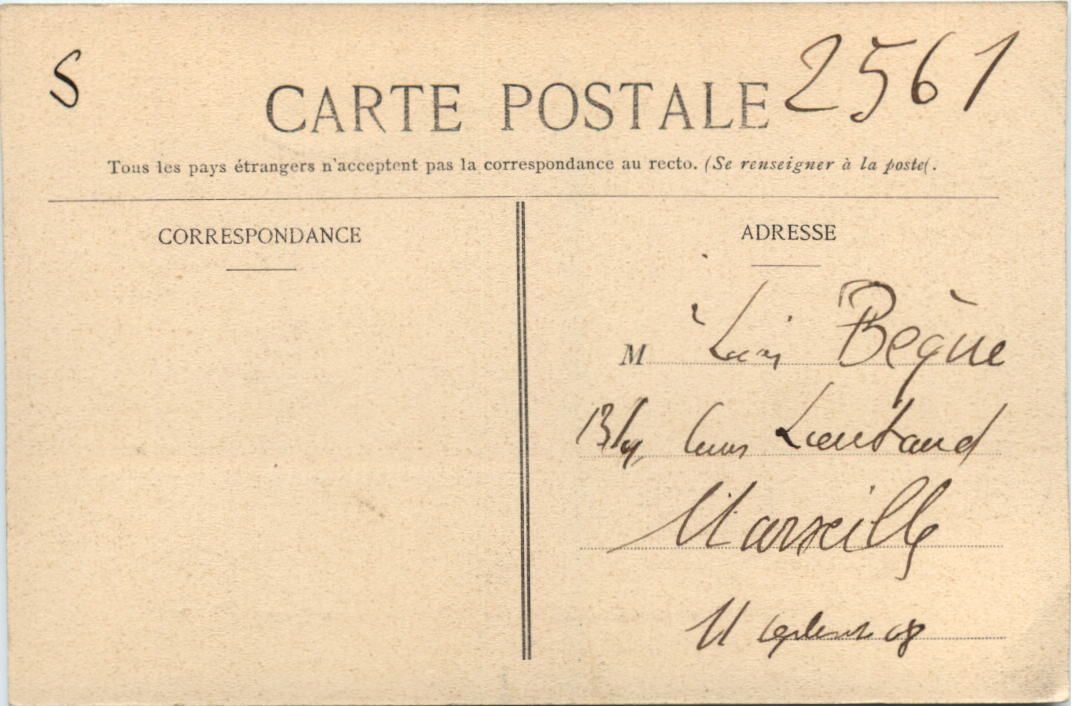 S
2561
CARTE POSTALE
Tous les pays étrangers n'acceptent pas la correspondance au recto. (Se renseigner à la poste(.
CORRESPONDANCE
ADRESSE
M Bèque
Cours Lieutaud
Marseille
11 08